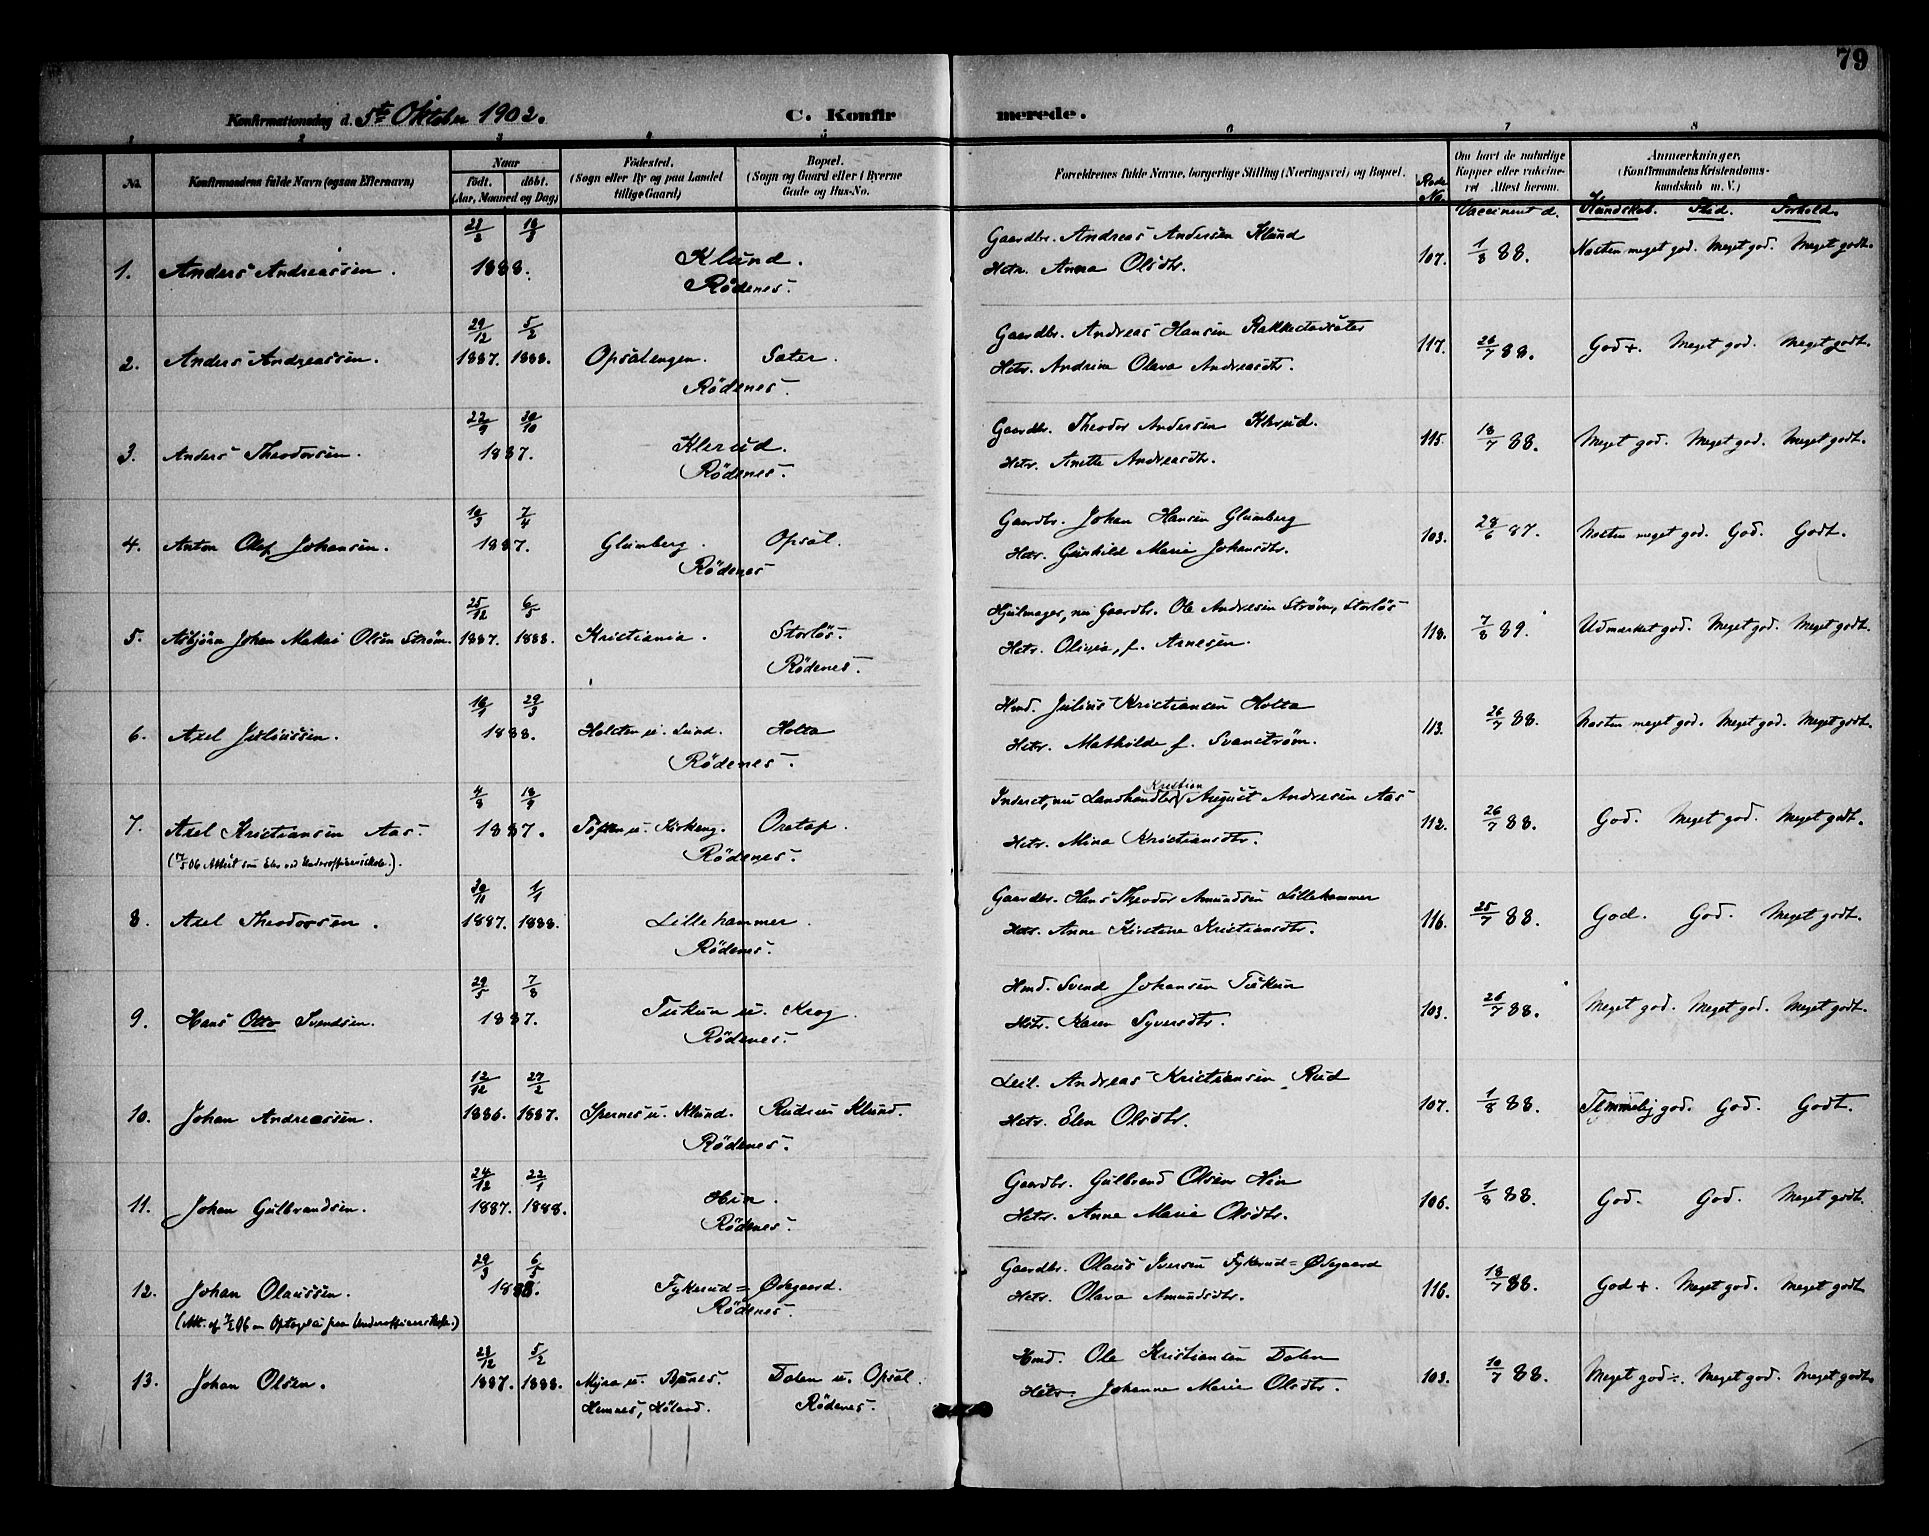 79
Konfirmationsdag d. 5te Oktober 1902.
C. Konfirmerede.
1 2 3 4 5 6 7 8
No.
Konfirmandens fulde Navn (ogsaa Efternavn)
Naar
födt. döbt.
(Aar, Maaned og Dag)
Födested.
(Sogn eller By og paa Landet
tillige Gaard)
Bopæl.
(Sogn og Gaard eller i Byerne
Gade og Hus-No.
Forældrenes fulde Navne, borgerlige Stilling (Næringsvei) og Bopæl.
Rode
No.
Om havt de naturlige
Kopper eller vakcine-
ret Attest herom.
Vaccineret d.
Anmærkninger,
(Konfirmandens Kristendoms-
kundskab m. V.)
Kundskab. Flid. Forhold.
1. Anders Andreassen. 1888. Klund.
Rödenes.
Gaardbr. Andreas Andersen Klund
Hstr. Anna Olsdtr.
107. 1/8 88. Næsten meget god. Meget god. Meget godt.
2. Anders Andreassen. 29/12 1887. 5/2 1888. Opsalengen. Sæter.
Rödenes.
Gaardbr. Andreas Hansen Rakkestadsæter
Hstr. Andrine Olava Andreasdtr.
117. 26/7 88. God +. Meget god. Meget godt.
3. Anders Theodorsen. 22/9 30/10 1887. Klerud.
Rödenes.
Gaardbr. Theodor Andersen Klerud.
Hstr. Anette Andreasdtr.
115. 18/7 88. Meget god. Meget god. Meget godt.
4. Anton Olaf Johansen. 10/3 7/4 1887. Glumberg. Opsal.
Rödenes
Gaardbr. Johan Hansen Glumberg
Hstr. Gunhild Marie Johansdtr.
103. 28/6 87. Næsten meget god. God. Godt.
5. Asbjörn Johan Makei Olsen Ström. 25/12 1887. 6/5 1888. Kristiania. Storlös.
Rödenes.
Hjulmager, nu Gaardbr. Ole Andresen Ström, Storlös
Hstr. Olivia, f. Arnesen.
118. 7/8 89. Udmærket god. Meget god. Meget godt.
6. Axel Juliussen. 29/3 1888. Holcten u. Lund. Holta
Rödenes.
Hmd. Julius Kristiansen Holta
Hstr. Mathilde f. Svanström.
113. 26/7 88. Næsten meget god. Meget god. Meget godt.
7. Axel Kristiansen Aas. 4/8 18/9 1887. u. Kirkeng. Oretop.
(Attest som Elev ved Underofficersskole.).
Rödenes.
Inderst, nu Landhandler Kristian August Andresen Aas
Hstr. Mina Kristiansdtr.
112. 26/7 88. God. Meget god. Meget godt.
8. Axel Theodorsen. 30/11 1887. 1/1 1888. Lillehammer.
Rödenes.
Gaardbr. Hans Theodor Amundsen Lillehammer
Hstr. Anne Kirstine Kristiansdtr.
116. 25/7 88. God. God. Meget godt.
9. Hans Otto Svendsen. 29/5 7/8 1887. Tukun u. Krog.
Rödenes.
Hmd. Svend Johansen Tukun
Hstr. Karen Syversdtr.
103. 26/7 88. Meget god. Meget god. Meget godt.
10. Johan Andreassen. 12/12 1886. 27/2 1887. Spernes u. Klund. Rud u. Klund.
Rödenes.
Leil. Andreas Kristiansen Rud
Hstr. Elen Olsdtr.
107. 1/8 88. Temmelig god. God. Godt.
11. Johan Gulbrandsen. 24/12 1887. 22/1 1888. Hin.
Rödenes.
Gaardbr. Gulbrand Olsen Hin
Hstr. Anne Marie Olsdtr.
106. 1/8 88. God. God. Meget godt.
12. Johan Olaussen. 29/3 6/5 1888. Fykerud = Ødegaard.
Rödenes.
Gaardbr. Olaus Iversen Fykerud = Ødegaard
Hstr. Olava Amundsdtr.
116. 18/7 88. God +. Meget god. Meget godt
13. Johan Olsen. 28/12 1887. 5/2 1888. Myra u. Dalen u. Opsal.
Hemnes, Höland. Rödenes.
Hmd. Ole Kristiansen Dalen
Hstr. Johanne Marie Olsdtr.
103. 10/7 88. Meget god ÷. Meget god. Meget godt.